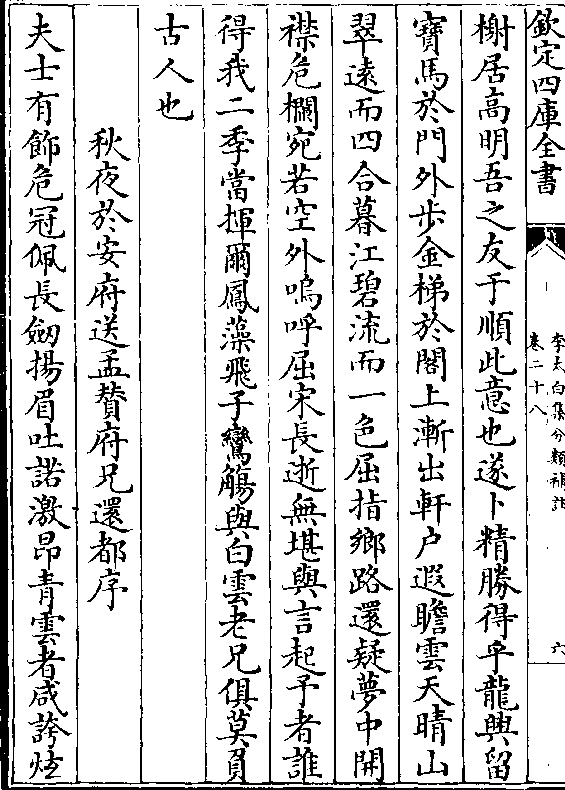 欽定四庫全書
李太白集分類補註
卷二十八
六
榭居高明吾之友于順此意也遂卜精勝得乎龍興留
寶馬於門外步金梯於閣上漸出軒户遐瞻雲天晴山
翠遠而四合暮江碧流而一色屈指鄉路還疑夢中開
襟危欄宛若空外嗚呼屈宋長逝無堪與言起予者誰
得我二季當揮爾鳳藻飛子鸞觴與白雲老兄俱莫負
古人也
秋夜於安府送孟贊府兄還都序
夫士有飾危冠佩長劒揚眉吐諾激昂青雲者咸誇炫